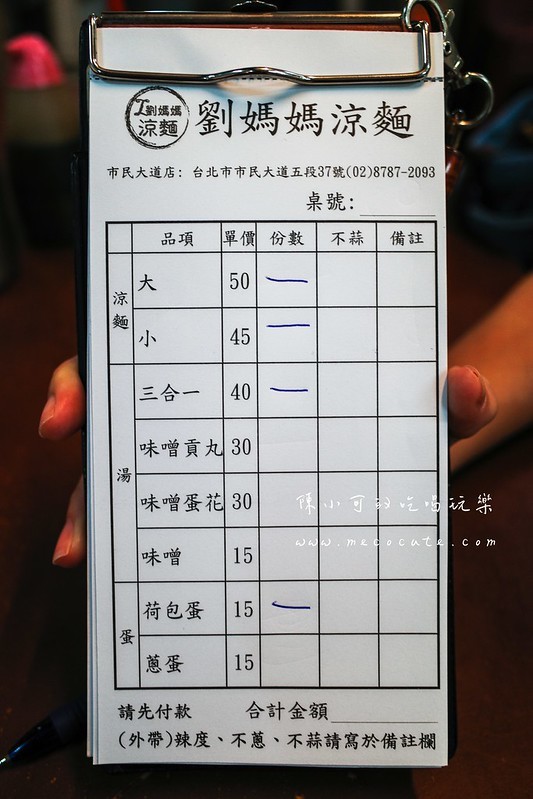 劉媽媽
涼麵
劉媽媽涼麵
市民大道店: 台北市市民大道五段37號(02)8787-2093
桌號:
品項 單價 份數 不蒜 備註
涼麵
大 50 一
小 45 一
湯
三合一 40 一
味噌貢丸 30
味噌蛋花 30
味噌 15
蛋
荷包蛋 15 一
蔥蛋 15
請先付款 合計金額
(外帶)辣度、不蔥、不蒜請寫於備註欄
陳小可的吃喝玩樂
www.mecocute.com